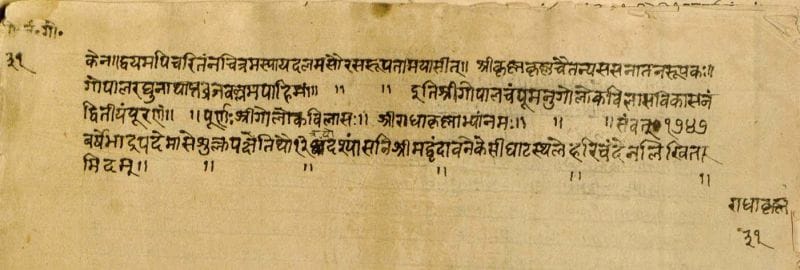 गो॰
३१
केन॥द्वयमपिचरितंनचित्रमस्यायदलमसौरसरूपतामयासीत्॥ श्रीकृष्णकृष्णचैतन्यससनातनरूपक॥
गोपालरघुनाथाप्तव्रजवल्लभपाहिमां॥ ॥ ॥ इतिश्रीगोपालचंपूमनुगोलोकविलासविकासनं
द्वितीयंपूरणं॥ ॥पूर्णःश्रीगोलोकविलासः॥ ॥श्रीराधाकृष्णाभ्यांनमः॥ ॥ ॥ संवत् १७४७
बर्षेभाद्रपदेमासेशुक्लपक्षेतिथौ१२ द्वादश्यांसनिश्रीमद्वृंदावनेकेसीघाटस्थलेहरिचंदेनलिखिता
मिदम्॥ ॥ ॥ ॥ ॥ ॥
राधाकृष्ण
३१